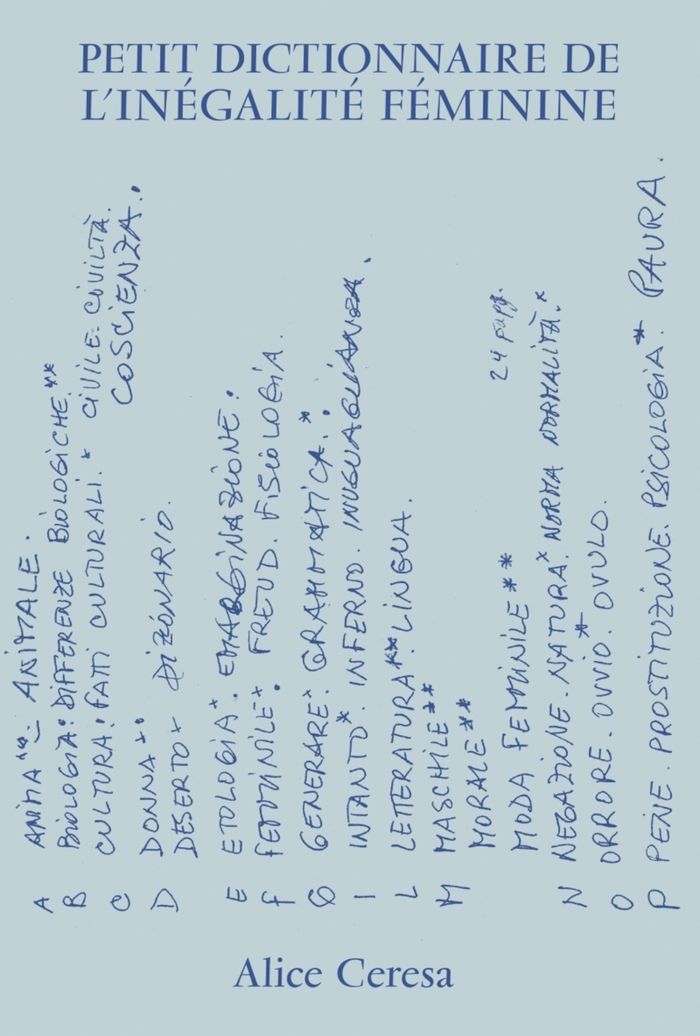 PETIT DICTIONNAIRE DE
L'INÉGALITÉ FÉMININE
A ANIMA** – ANIMALE.
B BIOLOGIA: DIFFERENZE BIOLOGICHE.**
C CULTURA: FATTI CULTURALI.* CIVILE. CIVILTÀ.
COSCIENZA.
D DONNA**
DESERTO* DIZIONARIO.
E ETOLOGIA*. EMARGINAZIONE.
F FEMMINILE*. FREUD. FISIOLOGIA.
G GENERARE* GRAMMATICA.*
I INTANTO*. INFERNO. INUGUAGLIANZA.
L LETTERATURA**. LINGUA.
M MASCHILE**
MORALE**
MODA FEMMINILE** 24 pagg.
N NEGAZIONE. NATURA* NORMA NORMALITÀ.*
O ORRORE. OVVIO.* OVULO.
P PENE. PROSTITUZIONE. PSICOLOGIA*. PAURA.
Alice Ceresa